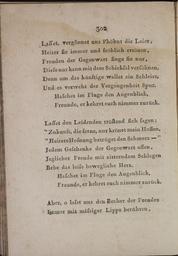 302
Lasset, vergönnet uns Phöbus die Leier,
Heiter sie immer und fröhlich ertönen,
Freuden der Gegenwart singe sie nur,
Diese nur kann mit dem Schicksal versöhnen,
Denn um das künftige wallet ein Schleier,
Und es verweht der Vergangenheit Spur.
Haschet im Fluge den Augenblick,
Freunde, er kehret euch nimmer zurück.
Lasset den Leidenden tröstend sich sagen:
"Zukunft, die ferne, nur krönet mein Hoffen,
"Heitere Hoffnung betrüget den Schmerz —"
Jedem Geschenke der Gegenwart offen,
Jeglicher Freude mit zitterndem Schlagen
Bebe das leise bewegliche Herz.
Haschet im Fluge den Augenblick,
Freunde, er kehret euch nimmer zurück.
Aber, o lasst uns den Becher der Freuden
Immer mit mässiger Lippe berühren,